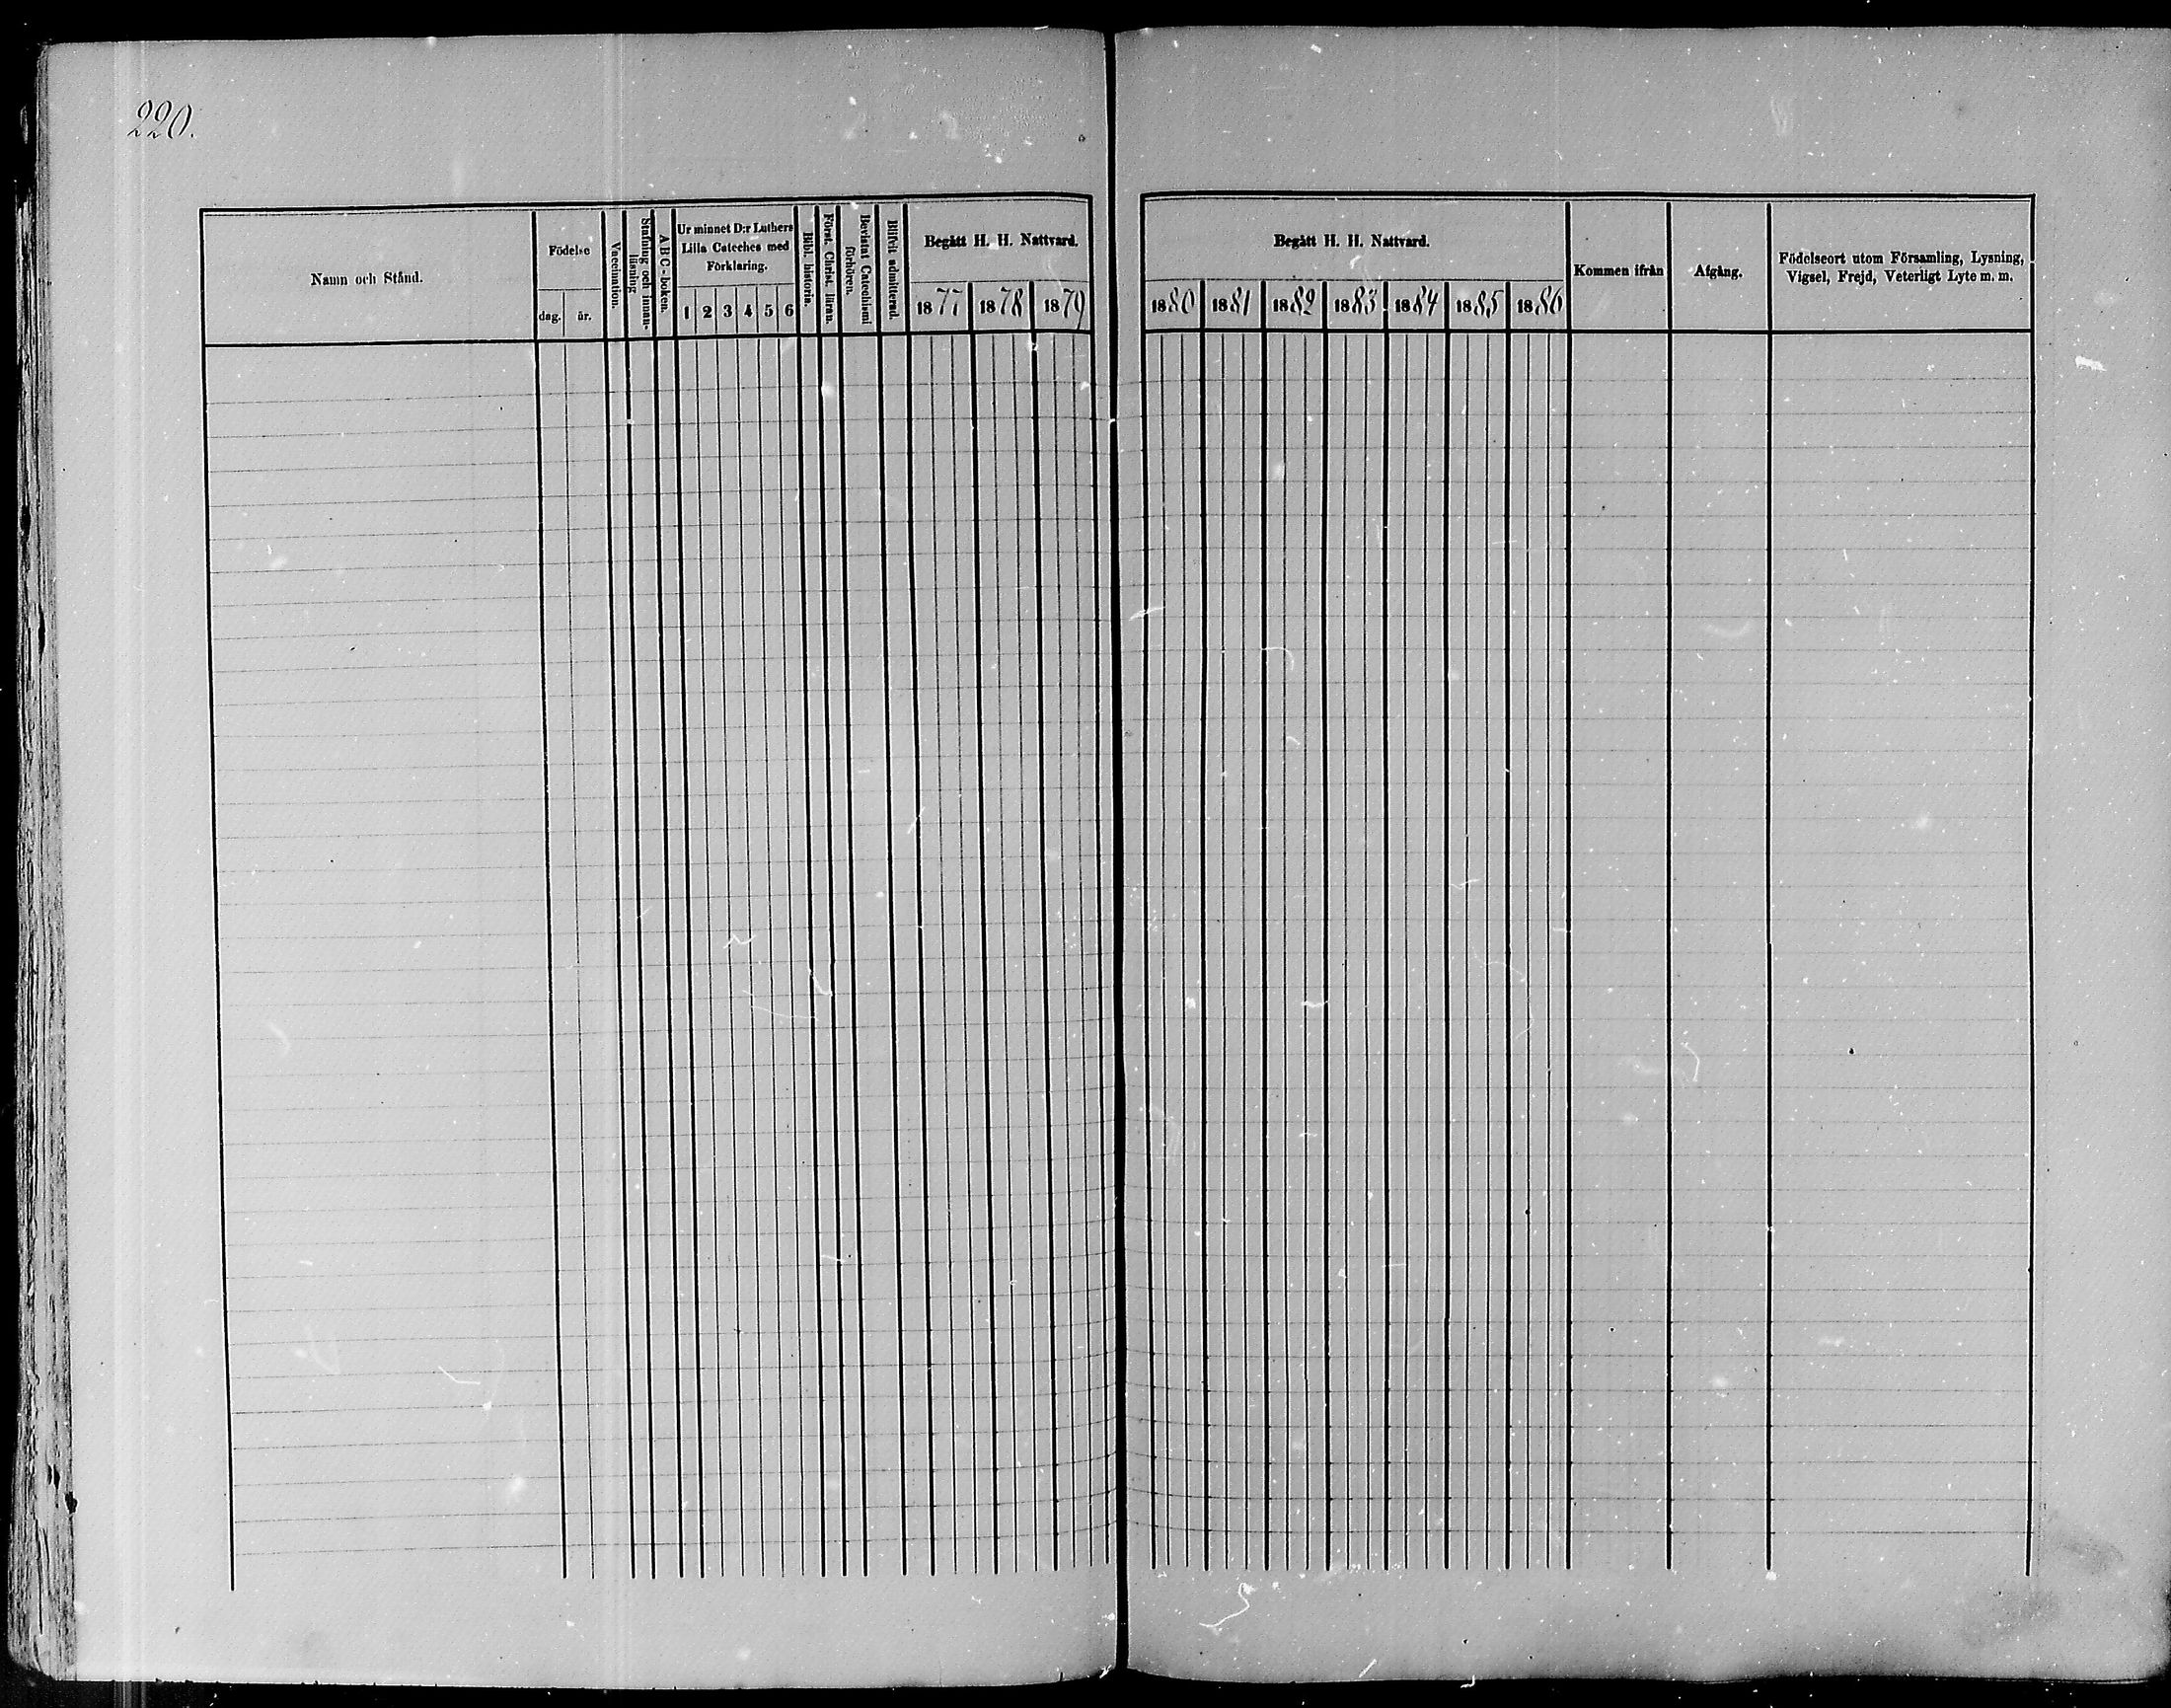 220.
Namn och Stånd.
Födelse
dag.
år.
Vaccination.
Stafning och innan-
läsning
ABC-boken.
Ur minnet D:r Luthers
Lilla Cateches med
Förklaring.
1 2 3 4 5 6
Bibl. historia.
Först. Christ. läran.
Bevistat Catechismi
förhören.
Blifvit admitterad.
Begått H. H. Nattvard.
1877 1878 1879
Begått H. H. Nattvard.
1880 1881 1882 1883 1884 1885 1886
Kommen ifrån
Afgång.
Födelseort utom Församling, Lysning,
Vigsel, Frejd, Veterligt Lyte m. m.